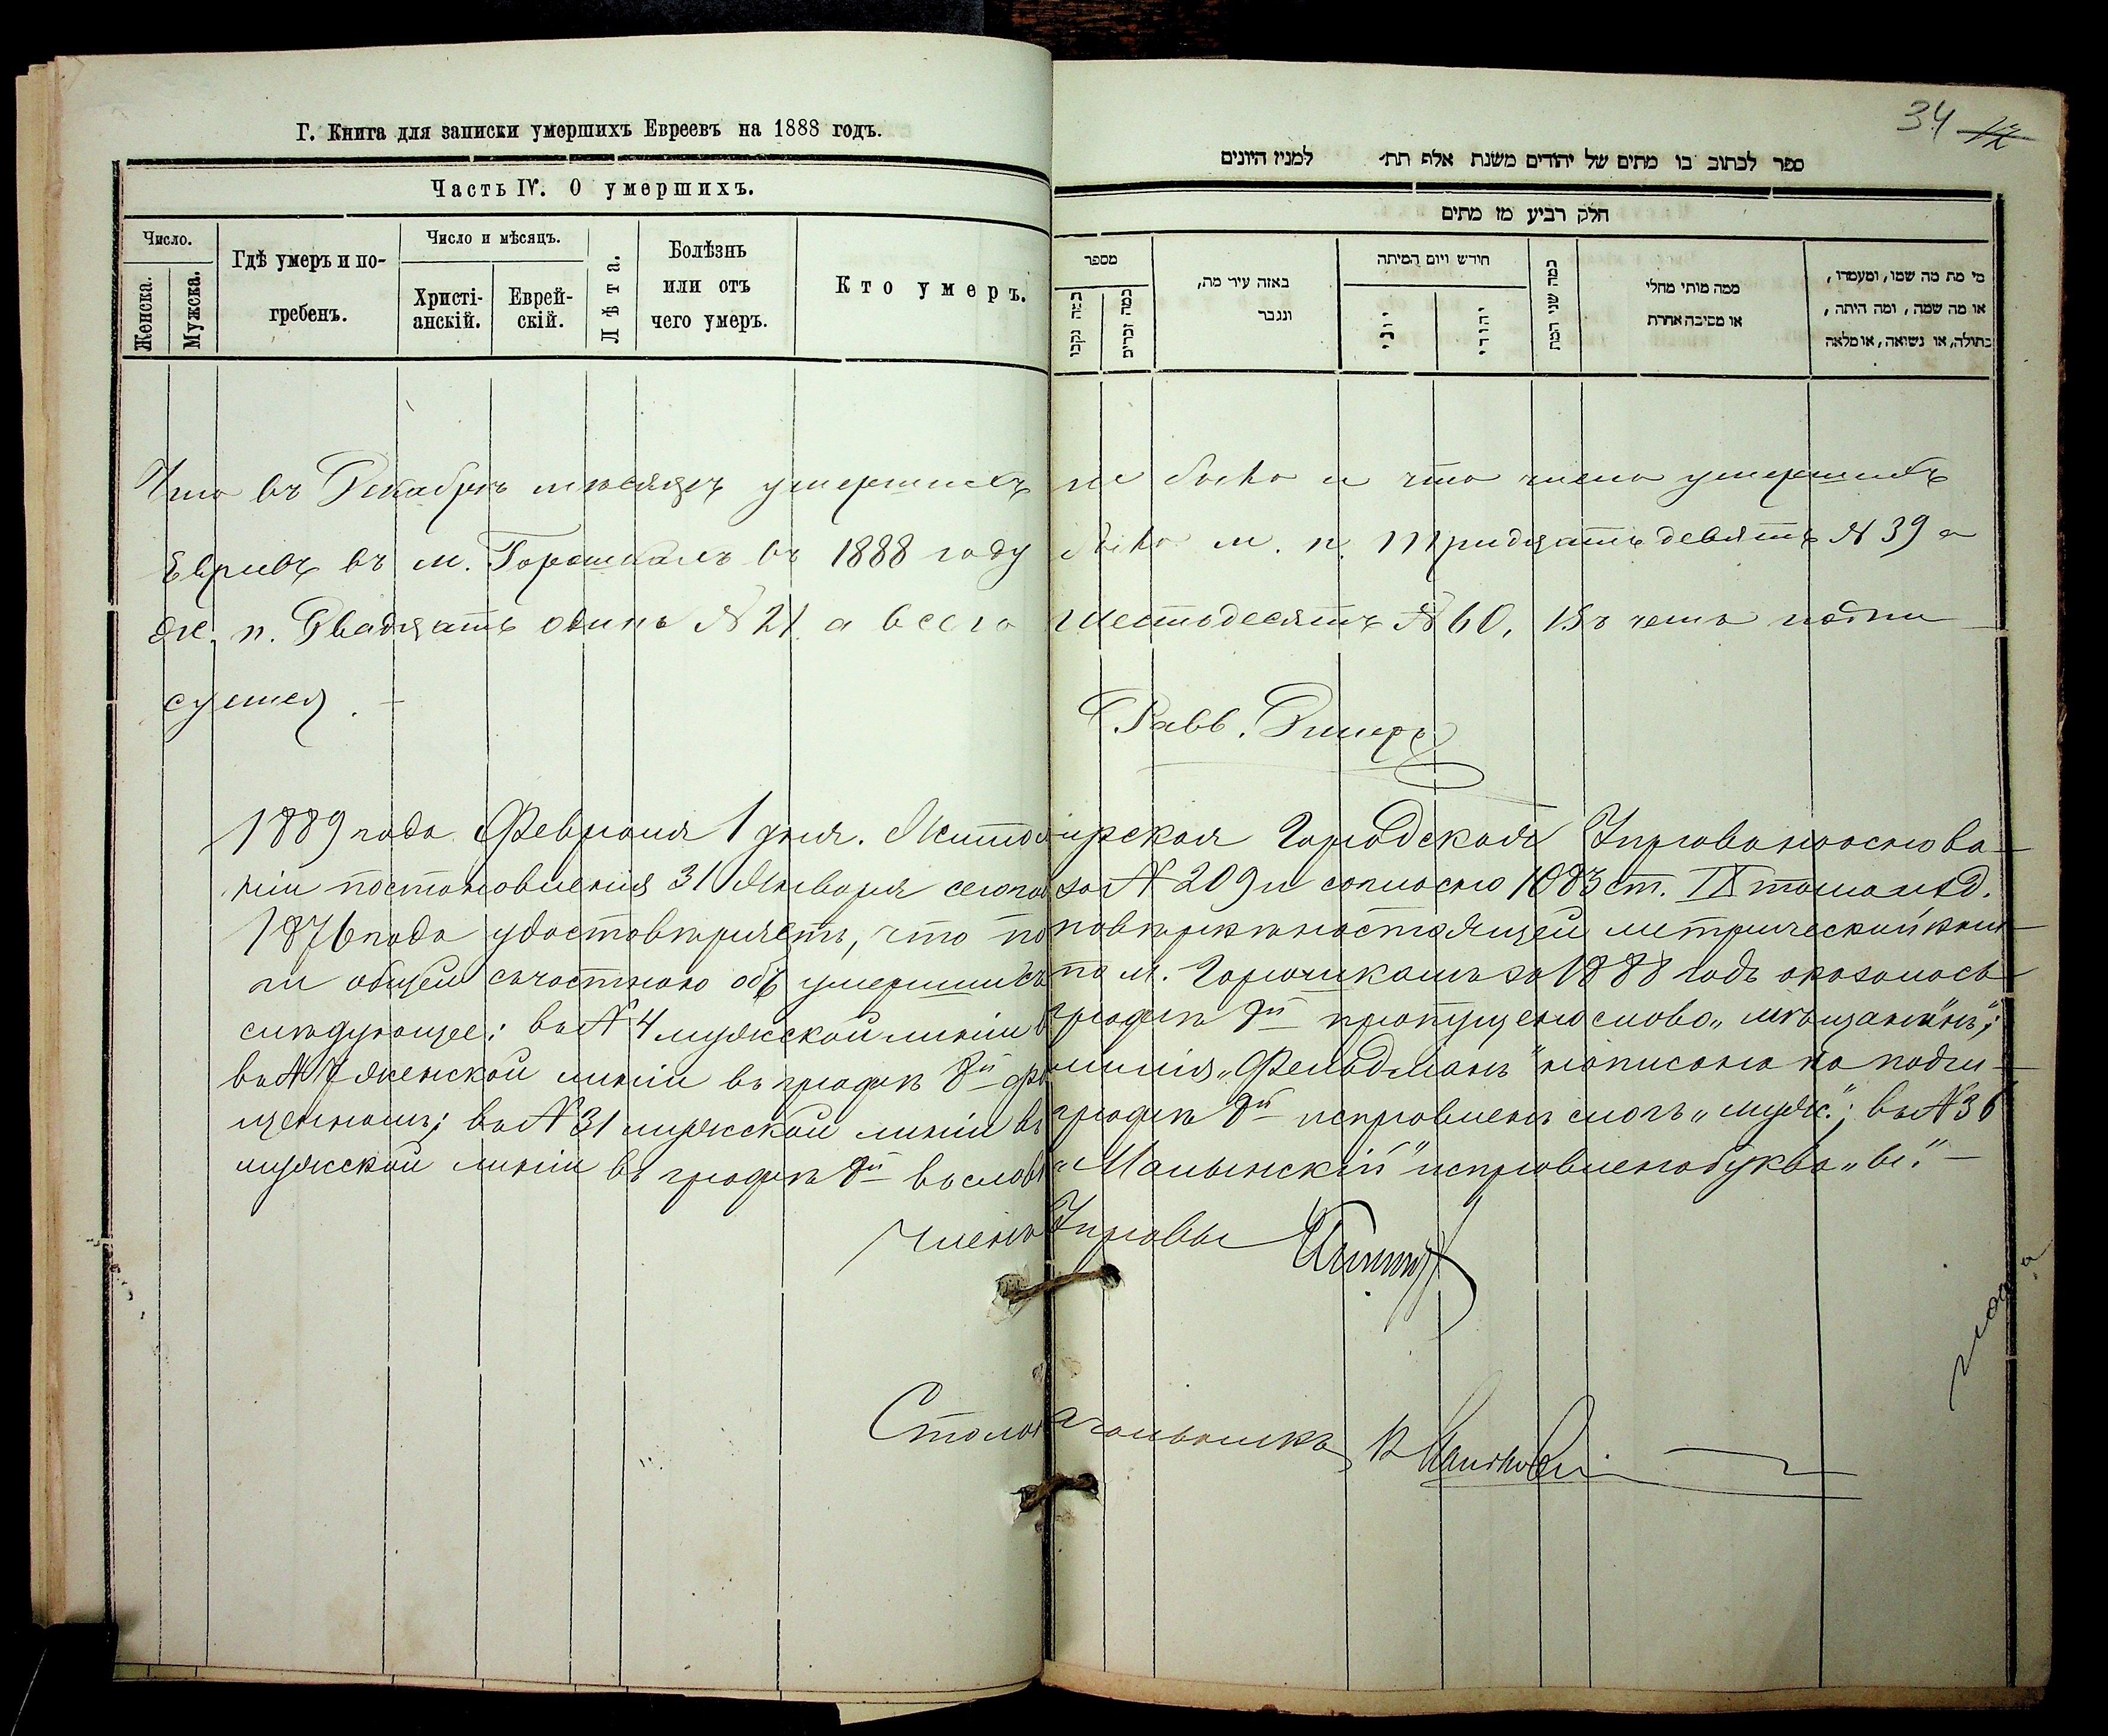 34 12
Г. Книга для записки умершихъ Евреевъ на 1888 годъ.
Часть IV. О умершихъ.
Число.
Женска.
Мужска.
Гдѣ умеръ и по-
гребенъ.
Число и мѣсяцъ.
Христі-
анскій.
Еврей-
скій.
Лѣта.
Болѣзнь
или отъ
чего умеръ.
Кто умеръ.
ספר לכתוב בו מתים של יהודים משנת אלף תת׳ למניז היונים
חלק רביע מז מתים
מספר
כמה נקבו
כמה זכרים
באזה עיר מת,
ונגבר
חודש ויום המיתה
יוני
יהודי
כמה שני המת
ממה מותי מחלי
או מסיבה אחרת
מי מת מה שמו, ומעמדו,
או מה שמה, ומה היתה,
בתולה, או נשואה, או מלאה
Что въ Декабрѣ мѣсяцѣ умершихъ не было и что числа умершихъ
Евреивъ въ м. Горошкахъ въ 1888 году было м. п. Тридцать девять № 39 а
ж. п. Двадцать одинъ № 21 а всего шестодесять № 60, въ чемъ подпи
суемся. –
Равв.
1889 года Февраля 1 дня. Житомірская Городская Управа на основа-
ніи постановленія 31 Января сего года за № 209 и согласно 1083 ст. IX тома изд.
1876 года удостовѣряетъ, что по повѣркѣ настоящей метрической кни-
ги общей съ частною объ умершихъ по м. Горошкамъ за 1888 годъ оказалось
слѣдующее: въ № 4 мужской линіи въ графѣ 8й пропущено слово „мѣщанинъ";
въ № 7 женской линіи въ графѣ 8й фамилія „Фельдманъ" написана на подчи-
щенномъ; въ № 31 мужской линіи въ графѣ 8й исправленъ слогъ „муж."; въ № 36
мужской линіи въ графѣ 8й въ словѣ „Малынскій" исправлена буква „ы". –
Членъ Управы
Столоначальникъ